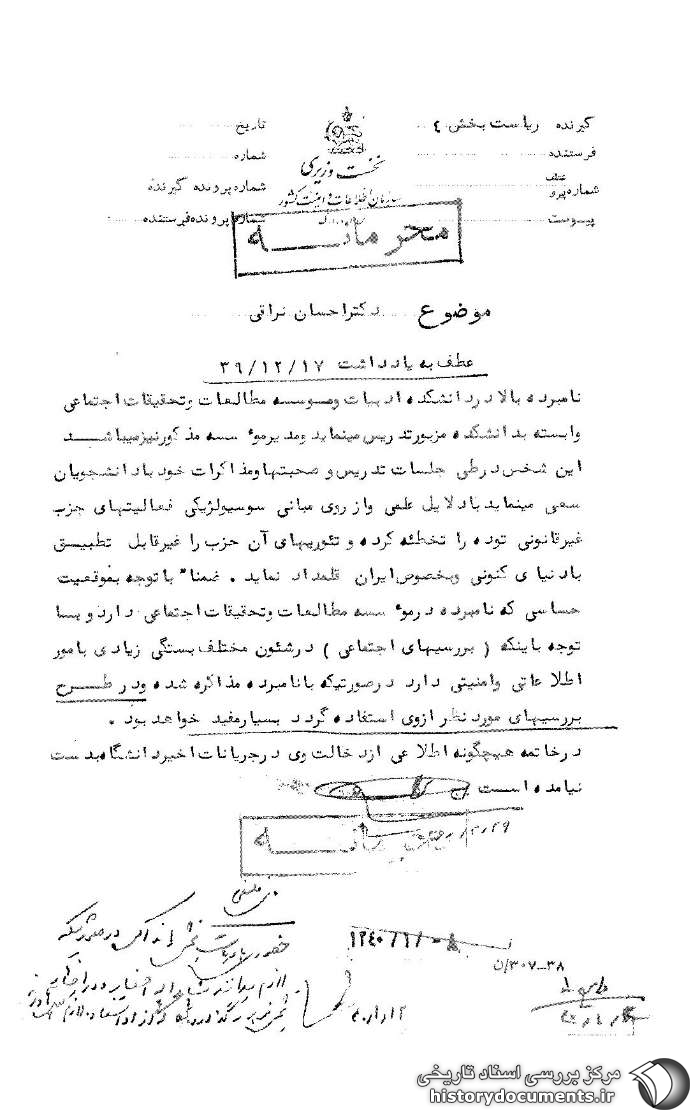 گیرنده ریاست بخش ٤
فرستنده
عطف
شماره پیرو
پیوست
نخست وزیری
سازمان اطلاعات و امنیت کشور
تاریخ
شماره
شماره پرونده گیرنده
شماره پرونده فرستنده
محرمانه
موضوع دکتر احسان نراقی
عطف به یادداشت ۳۹/۱۲/۱۷
نامبرده بالا در دانشکده ادبیات و موسسه مطالعات و تحقیقات اجتماعی
وابسته بدانشکده مزبور تدریس مینماید و مدیر موٴسسه مذکور نیز میباشد
این شخص در طی جلسات تدریس و صحبتها و مذاکرات خود با دانشجویان
سعی مینماید با دلایل علمی و از روی مبانی سوسیولژیکی فعالیتهای حزب
غیرقانونی توده را تخطئه کرده و تئوریهای آن حزب را غیرقابل تطبیق
با دنیای کنونی و بخصوص ایران قلمداد نماید . ضمناً با توجه بموقعیت
حساسی که نامبرده در موٴسسه مطالعات و تحقیقات اجتماعی دارد و بسا
توجه باینکه ( بررسیهای اجتماعی ) در شئون مختلف بستگی زیادی بامور
اطلاعاتی و امنیتی دارد در صورتیکه با نامبرده مذاکره شده و در طرح
بررسیهای مورد نظر از وی استفاده گردد بسیار مفید خواهد بود .
در خاتمه هیچگونه اطلاعی از دخالت وی در جریانات اخیر دانشگاه بدست
نیامده است
محرمانه
۱۳٤۰/۱/۰۸
۳۰۷-۳۸/ن
مرکز بررسی اسناد تاریخی
historydocuments.ir